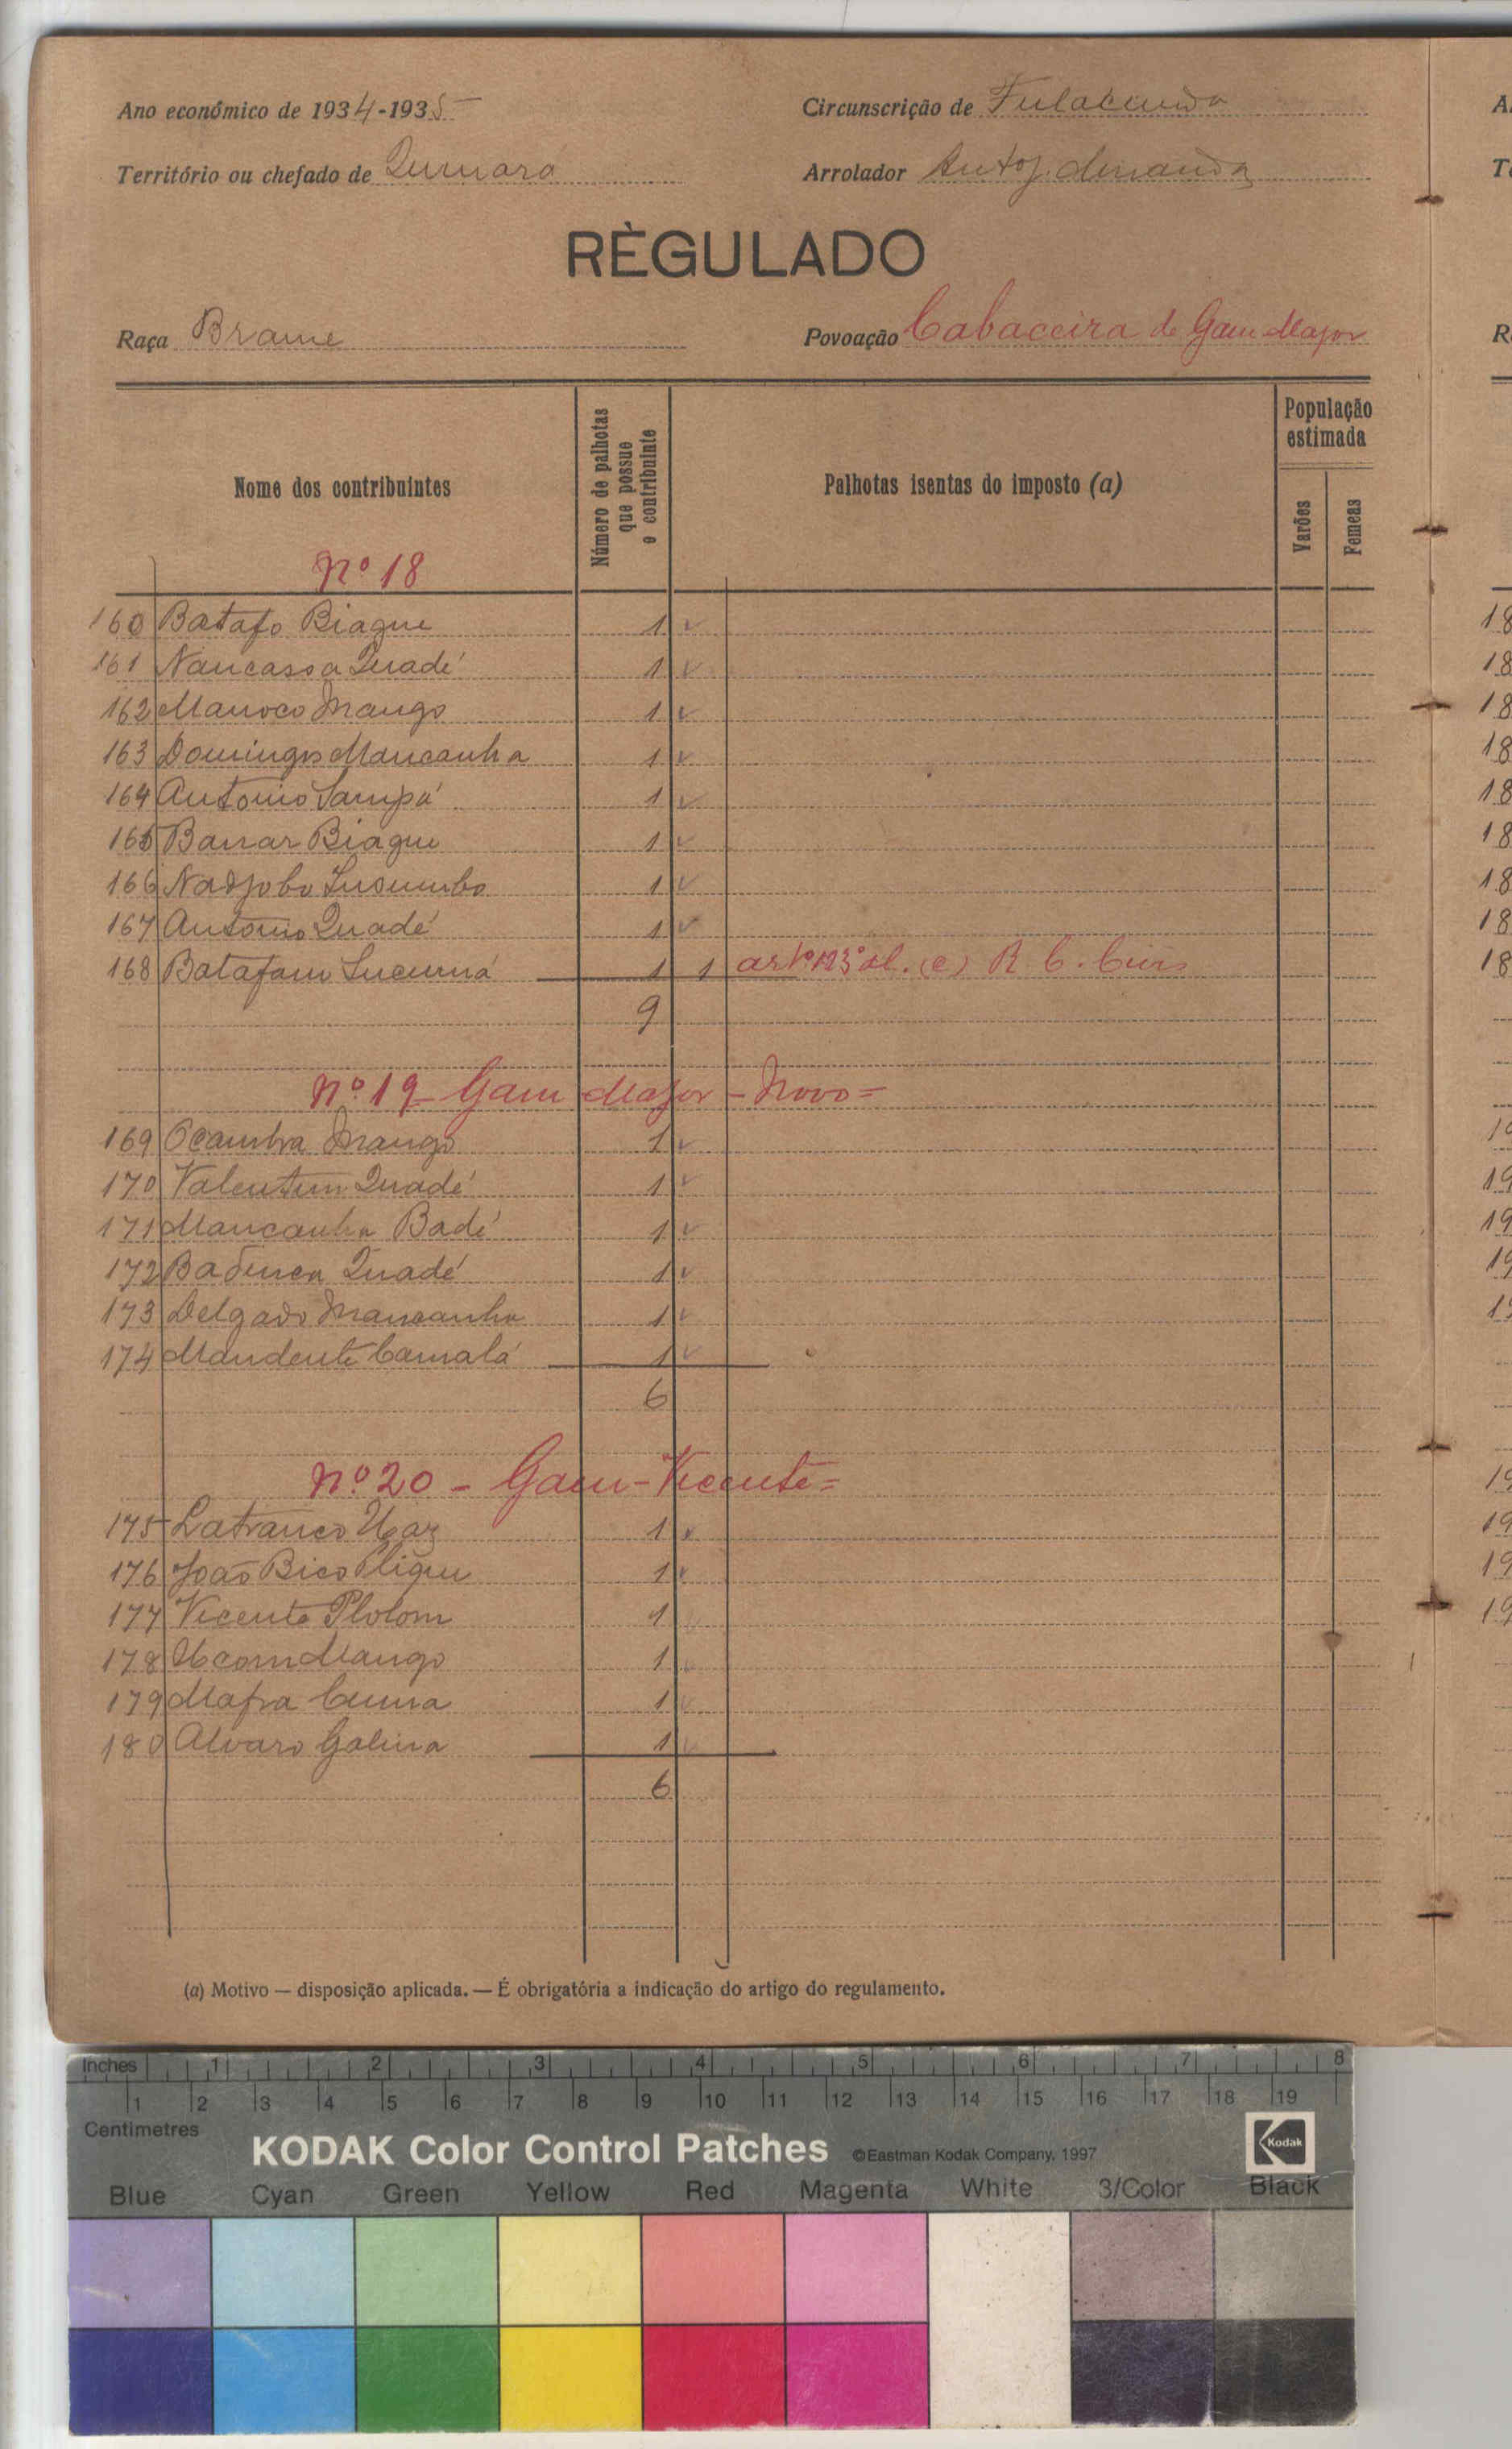 Ano económico de 1934-1935 Circunscrição de Fulacunda
Território ou chefado de Quinara Arrolador Antº J. Miranda
RÈGULADO
Raça Brame Povoação Cabaceira de Gam Major
Nome dos contribuintes
Número de palhotas que possue o contribuinte
Palhotas isentas do imposto (a)
População estimada
Varões
Femeas
Nº 18
160 Batafo Biague 1
161 Nancassa Quadé 1
162 Manoco Mango 1
163 Domingos Mancanha 1
164 Antonio Sampá 1
165 Banar Biague 1
166 Nadjobo 1
167 Antonio Quadé 1
168 Batafam 1 1 artº 123º al. (e) R. C.
9
Nº 19 - Gam Major - Novo =
169 Ocambra Mango 1
170 Valentim Quadé 1
171 Mancanha Badé 1
172 Badinca Quadé 1
173 Delgado Mancanha 1
174 Mandente Camalá 1
6
Nº 20 - Gam-Vicente =
175 Latranco 1
176 João Bico 1
177 Vicente Plolom 1
178 Ucom Mango 1
179 Mafra 1
180 Alvaro Galina 1
6
(a) Motivo — disposição aplicada. — É obrigatória a indicação do artigo do regulamento.
Inches 1 2 3 4 5 6 7 8
1 2 3 4 5 6 7 8 9 10 11 12 13 14 15 16 17 18 19
Centimetres
KODAK Color Control Patches ©Eastman Kodak Company, 1997 Kodak
Blue Cyan Green Yellow Red Magenta White 3/Color Black